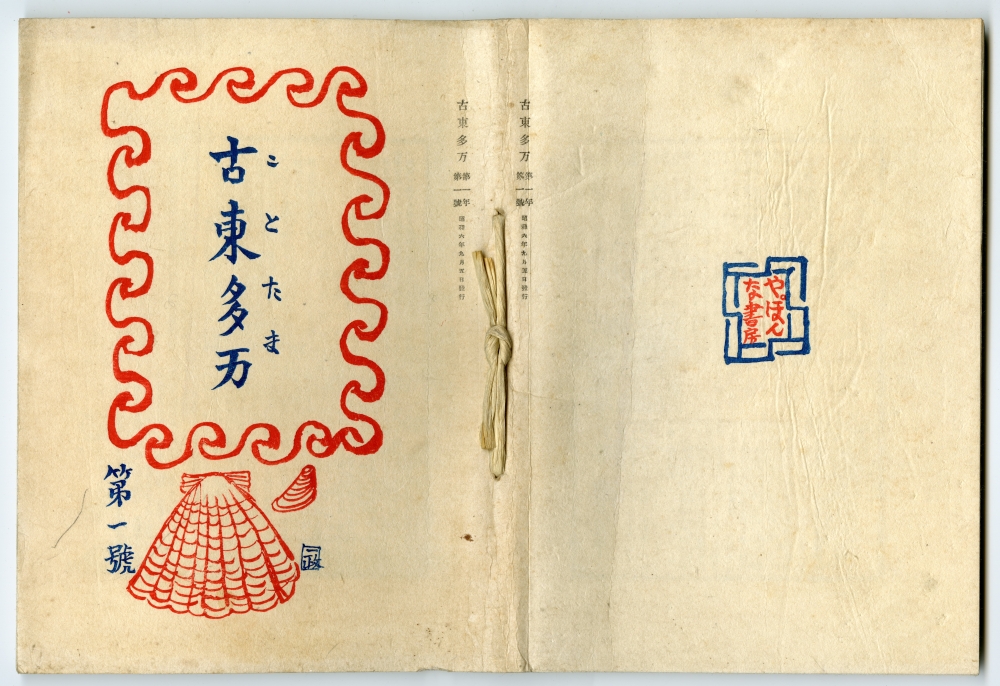 古東多万
ことたま
第一號
一政
古東多万 第一年 第一號 昭和六年九月五日發行
古東多万 第一年 第一號 昭和六年九月五日發行
やぽんな書房